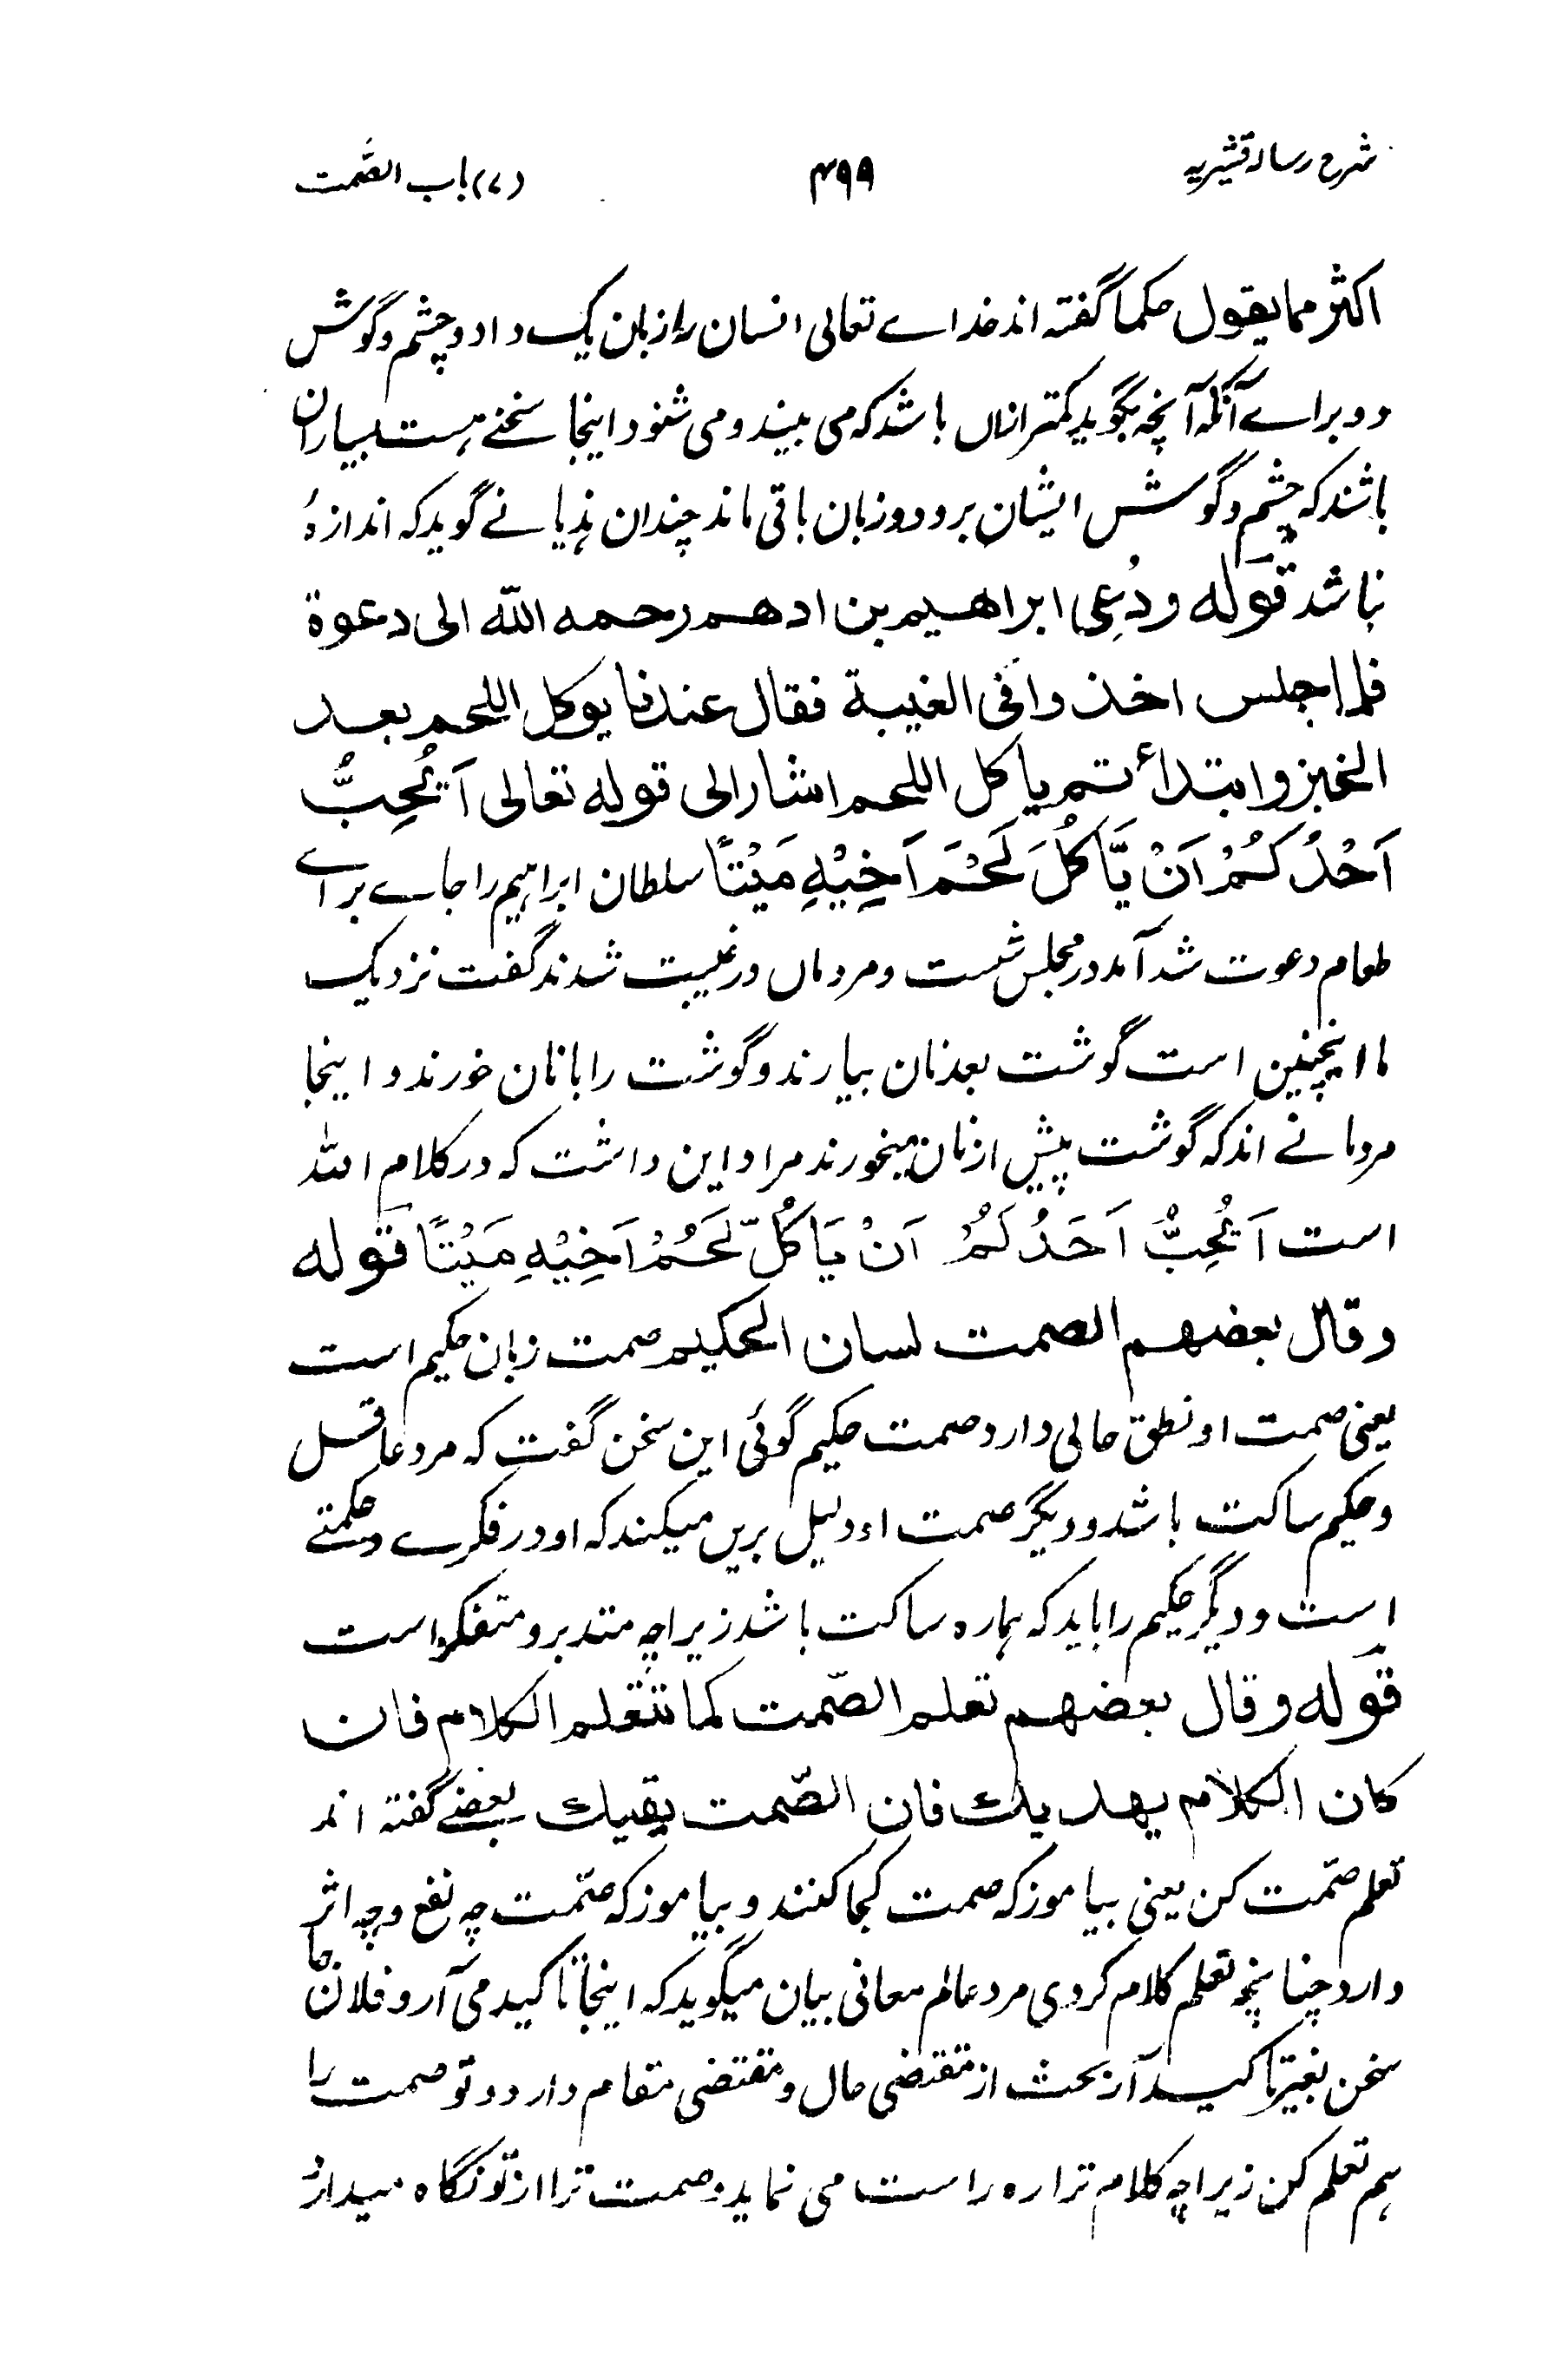 شرح رسالہ قشیریہ ۴۹۹ (۷) باب الصَّمت
اکثر مما یقول حکما گفتہ اند خداے تعالی انسان را زبان یک داد و چشم و گوش
دو براے آنکہ آنچہ بگوید کمتر ازاں باشد کہ می بیند و می شنود اینجا سخنے ہست بسیاران
باشند کہ چشم و گوش ایشان برود و زبان باقی ماند چندان ہذیانے گوید کہ اندازہُ
نباشد قوله ودُعِی ابراهیم بن ادهم رحمه الله الی دعوة
فلما جلس اخذ وافی الغیبة فقال عندنا یوکل اللحم بعد
الخبز وابتدأ تم یاکل اللحم اشار الی قوله تعالی اَیُحِبُّ
اَحْدُکُمْ اَنْ یَّاکُلَ لَحْمَ اَخِیْهِ مَیْتاً سلطان ابراہیم را جاے براے
طعام دعوت شد آمد در مجلس نشست و مردماں در غیبت شدند گفت نزدیک
ما اینچنین است گوشت بعد نان بیارند و گوشت را با نان خورند و اینجا
مردمانے اند کہ گوشت پیش از نان میخورند مراد این داشت کہ در کلام اللہ
است اَیُحِبُّ اَحَدُکُمْ اَنْ یَاکُلّ لَحُمْ اَخِیْهِ مَیْتاً قوله
وقال بعضهم الصمت لسان الحکیم صمت زبان حکیم است
یعنی صمت او نطق حالی دارد صمت حکیم گوئی این سخن گفت کہ مرد عاقل
و حکیم ساکت باشد و دیگر صمت او دلیل بریں میکند کہ او در فکرے و حکمتے
است و دیگر حکیم را باید کہ ہمارہ ساکت باشد زیراچہ متدبر و متفکر است
قوله وقال بعضهم تعلم الصّمت کما تتعلم الکلام فان
کان الکلام یهدیك فان الصّمت یقیك بعضے گفتہ اند
تعلم صمّت کن یعنی بیاموز کہ صمت کجا کنند و بیاموز کہ صمّت چہ نفع و چہ اثر
دارد چنانچہ تعلم کلام کردی مرد عالم معانی بیان میگوید کہ اینجا تاکید می آر و فلان جا
سخن بغیر تاکید آر بحث از مقتضی حال و مقتضی مقام دارد و تو صمت را
ہم تعلم کن زیراچہ کلام ترا رہ راست می نماید و صمت ترا از تو نگاہ میدارد